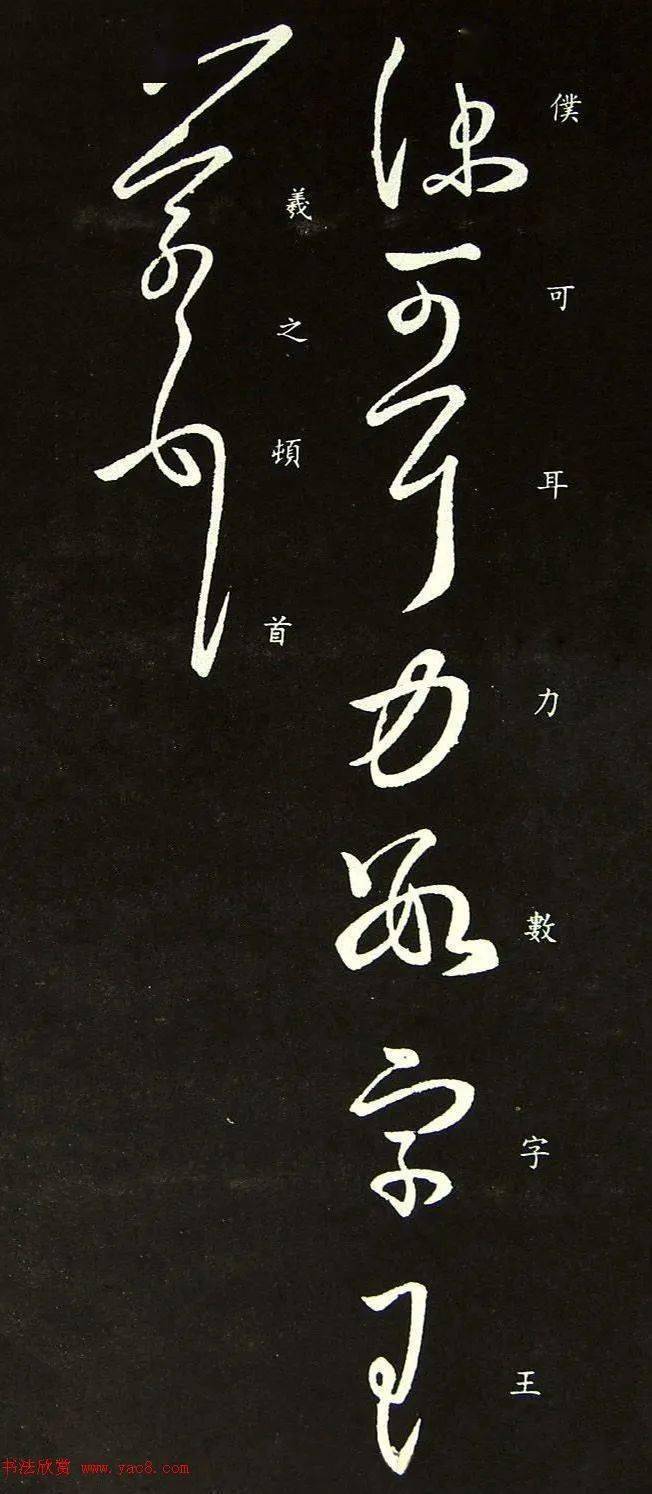 僕可耳力數字王
羲之頓首
书法欣赏 www.yac8.com